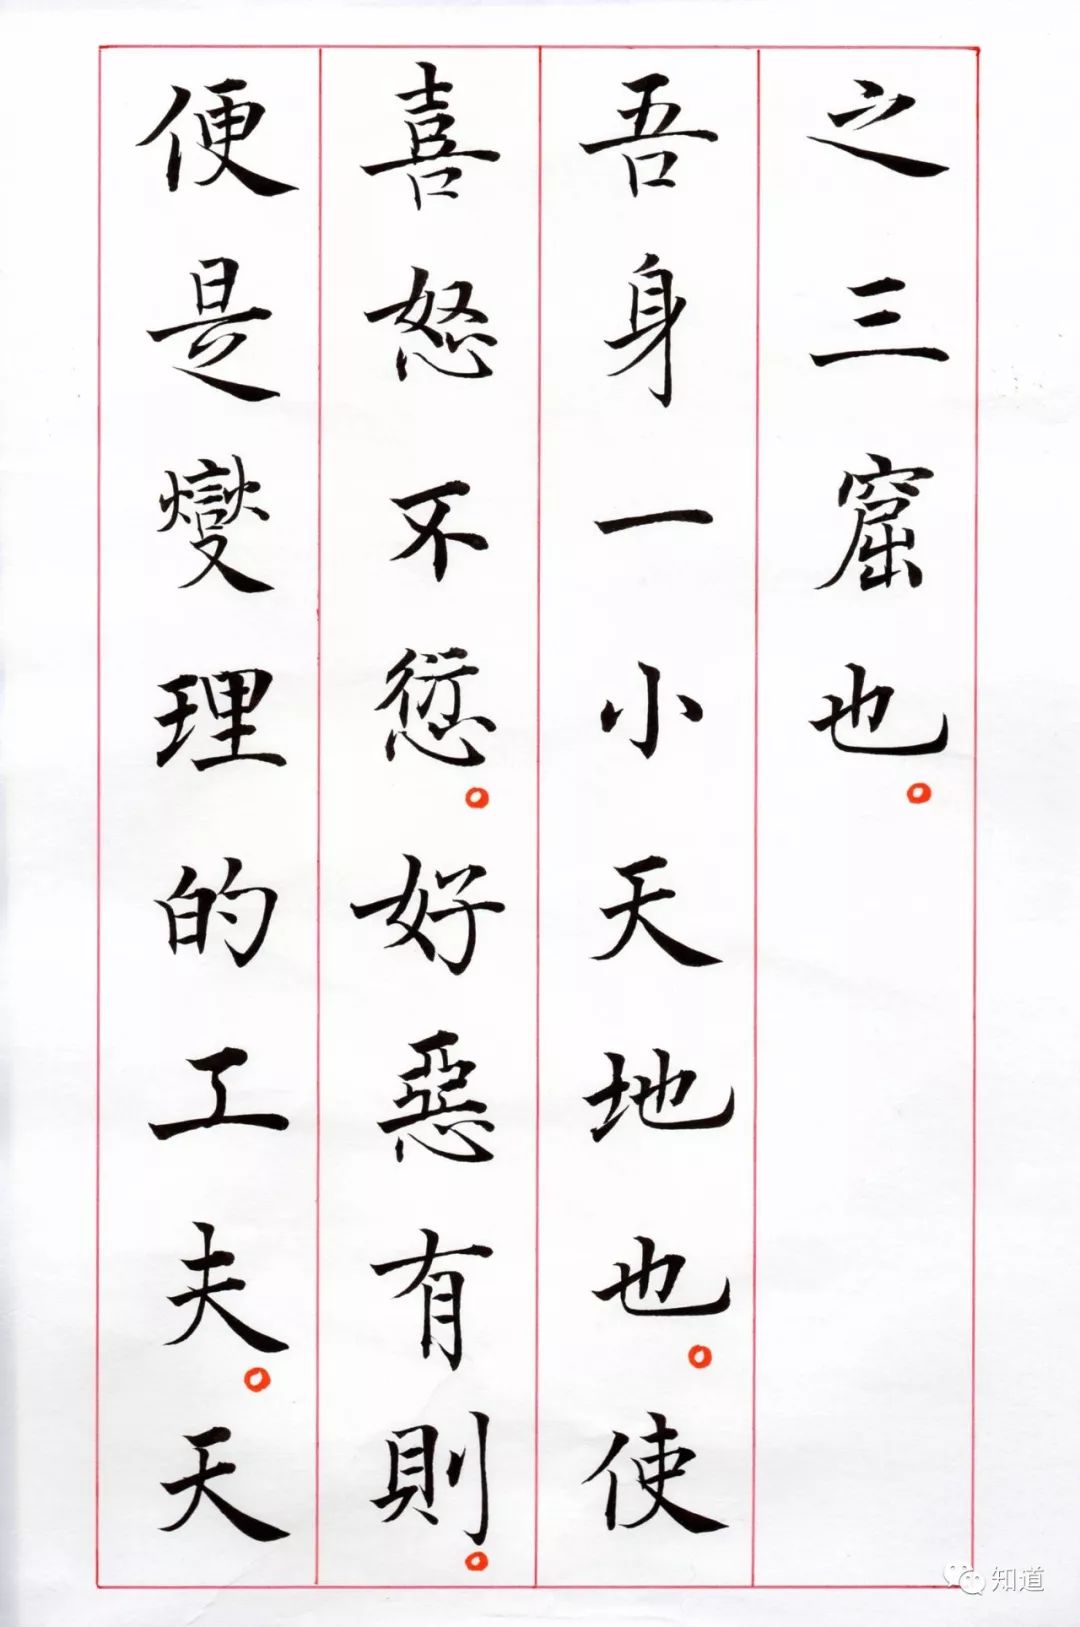 之三窟也。
吾身一小天地也。使
喜怒不愆。好惡有則。
便是燮理的工夫。天
知道